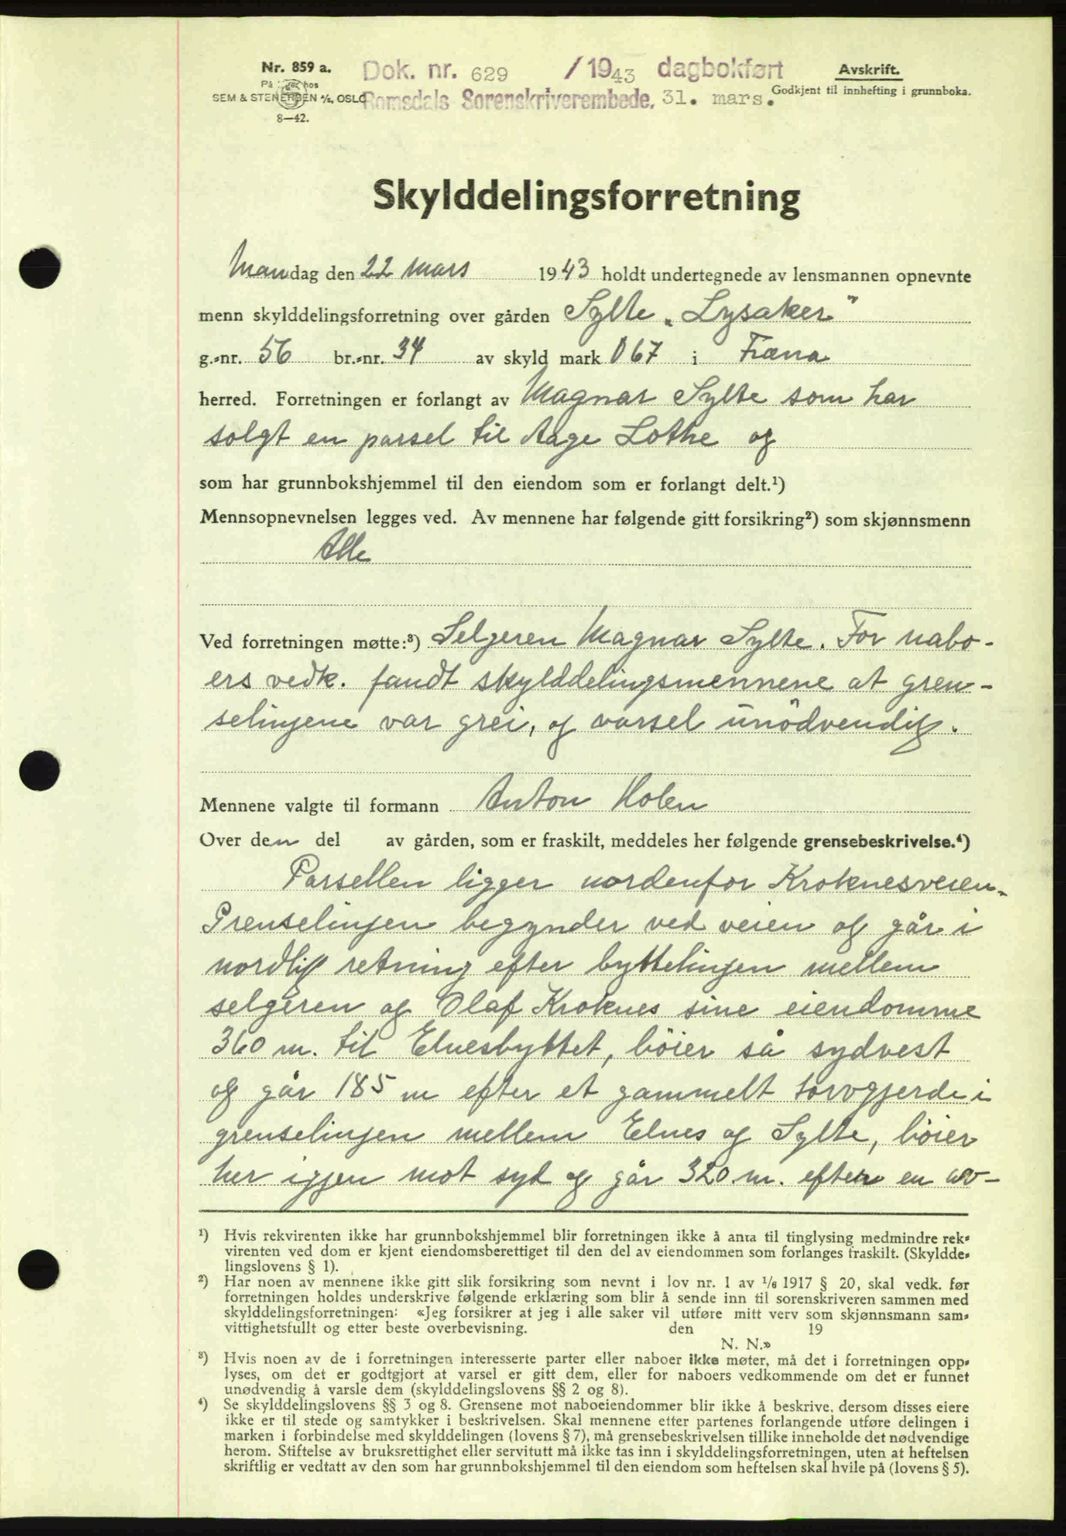 Nr. 859 a.
På lager hos
SEM & STENERSEN A/S, OSLO
8—42.
Dok. nr. 629 /1943 dagbokført
Romsdals Sorenskriverembede, 31. mars.
Avskrift.
Godkjent til innhefting i grunnboka.
Skylddelingsforretning
Mandag den 22 mars 1943 holdt undertegnede av lensmannen opnevnte
menn skylddelingsforretning over gården Sylte „Lysaker"
g.-nr. 56 br.-nr. 34 av skyld mark 0 67 i Fræna
herred. Forretningen er forlangt av Magnar Sylte som har
solgt en parsel til Aage Lothe og
som har grunnbokshjemmel til den eiendom som er forlangt delt.¹)
Mennsopnevnelsen legges ved. Av mennene har følgende gitt forsikring²) som skjønnsmenn
Alle
Ved forretningen møtte:³) Selgeren Magnar Sylte. For nabo-
ers vedk. fandt skylddelingsmennene at gren-
selinjene var grei, og varsel unödvendig.
Mennene valgte til formann Anton Holen
Over den del av gården, som er fraskilt, meddeles her følgende grensebeskrivelse.⁴)
Parsellen ligger nordenfor Kroknesveien.
Grenselinjen begynder ved veien og går i
nordlig retning efter byttelinjen mellem
selgeren og Olaf Kroknes sine eiendomme
360 m. til Elnesbyttet, böier så sydvest
og går 185 m efter et gammelt torvgjerde i
grenselinjen mellem Elnes og Sylte, böier
her igjen mot syd og går 320 m. efter en av-
¹) Hvis rekvirenten ikke har grunnbokshjemmel blir forretningen ikke å anta til tinglysing medmindre rek-
virenten ved dom er kjent eiendomsberettiget til den del av eiendommen som forlanges fraskilt. (Skyldde-
lingslovens § 1).
²) Har noen av mennene ikke gitt slik forsikring som nevnt i lov nr. 1 av 1/6 1917 § 20, skal vedk. før
forretningen holdes underskrive følgende erklæring som blir å sende inn til sorenskriveren sammen med
skylddelingsforretningen: «Jeg forsikrer at jeg i alle saker vil utføre mitt verv som skjønnsmann sam-
vittighetsfullt og etter beste overbevisning. den 19
N. N.»
³) Hvis noen av de i forretningen interesserte parter eller naboer ikke møter, må det i forretningen opp-
lyses, om det er godtgjort at varsel er gitt dem, eller for naboers vedkommende om det er funnet
unødvendig å varsle dem (skylddelingslovens §§ 2 og 8).
⁴) Se skylddelingslovens §§ 3 og 8. Grensene mot naboeiendommer blir ikke å beskrive, dersom disses eiere
ikke er til stede og samtykker i beskrivelsen. Skal mennene etter partenes forlangende utføre delingen i
marken i forbindelse med skylddelingen (lovens § 7), må grensebeskrivelsen tillike inneholde det nødvendige
herom. Stiftelse av bruksrettighet eller servitutt må ikke tas inn i skylddelingsforretningen, uten at heftelsen
skriftlig er vedtatt av den som har grunnbokshjemmel til den eiendom som heftelsen skal hvile på (lovens § 5).